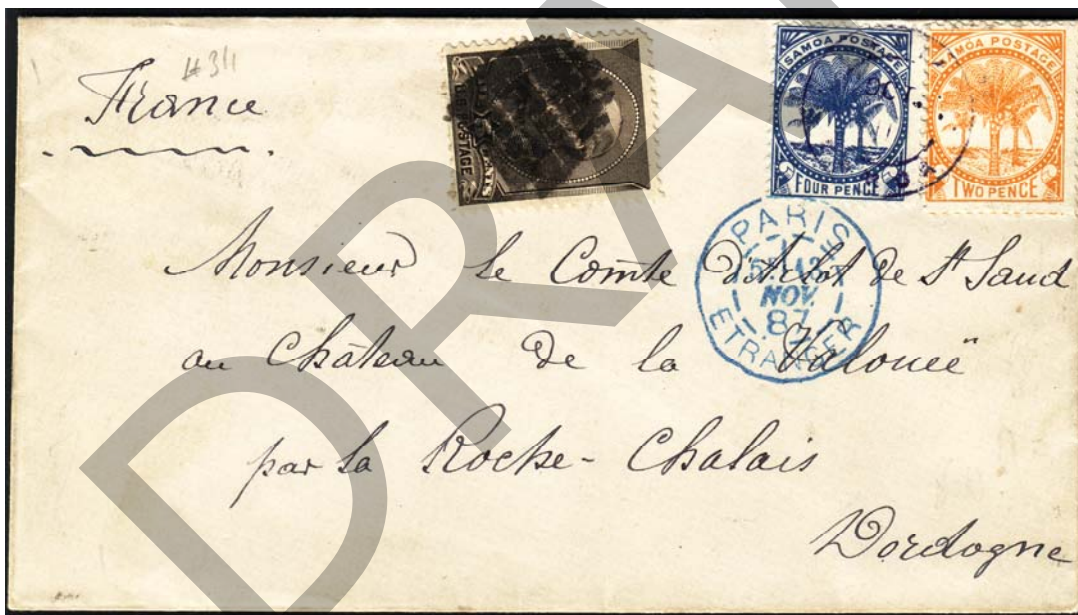 #311
France
SAMOA POSTAGE
FOUR PENCE
SAMOA POSTAGE
TWO PENCE
POSTAGE
PARIS
NOV.
87
ETRANGER
Monsieur le Comte d'Arlot de St Saud
au Château de la Valouë
par La Roche-Chalais
Dordogne
DRA